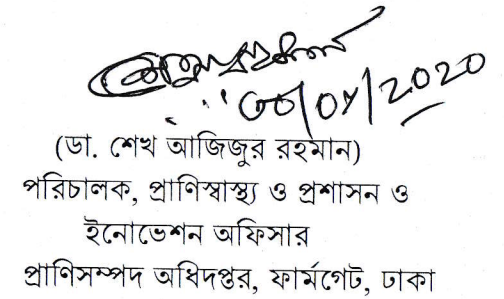 (ডা. শেখ আজিজুর রহমান)
পরিচালক, প্রাণিস্বাস্থ্য ও প্রশাসন ও
ইনোভেশন অফিসার
প্রাণিসম্পদ অধিদপ্তর, ফার্মগেট, ঢাকা